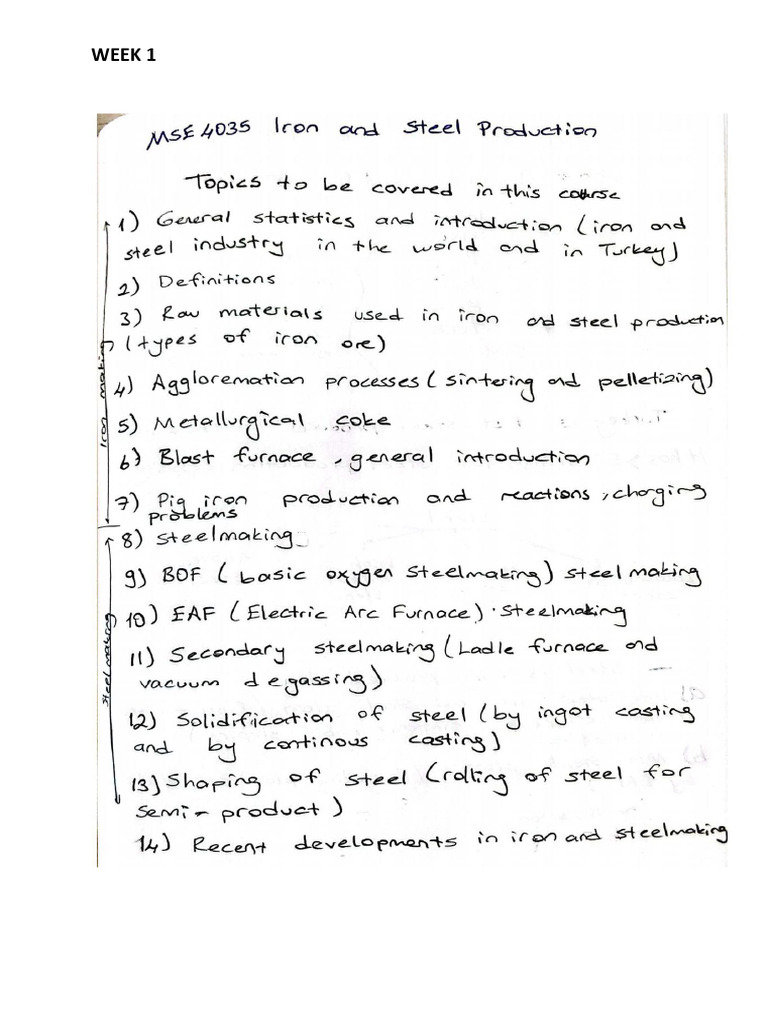 WEEK 1
MSE 4035 Iron and Steel Production
Topics to be covered in this course
1) General statistics and introduction (iron and
steel industry in the world and in Turkey)
2) Definitions
3) Raw materials used in iron and steel production
(types of iron ore)
4) Aggloremation processes (sintering and pelletizing)
5) Metallurgical coke
6) Blast furnace, general introduction
7) Pig iron production and reactions, charging
problems
8) Steelmaking
9) BOF (basic oxygen steelmaking) steel making
10) EAF (Electric Arc Furnace) steelmaking
11) Secondary steelmaking (Ladle furnace and
vacuum degassing)
12) Solidification of steel (by ingot casting
and by continous casting)
13) Shaping of steel (rolling of steel for
semi-product)
14) Recent developments in iron and steelmaking
Iron making
steel making